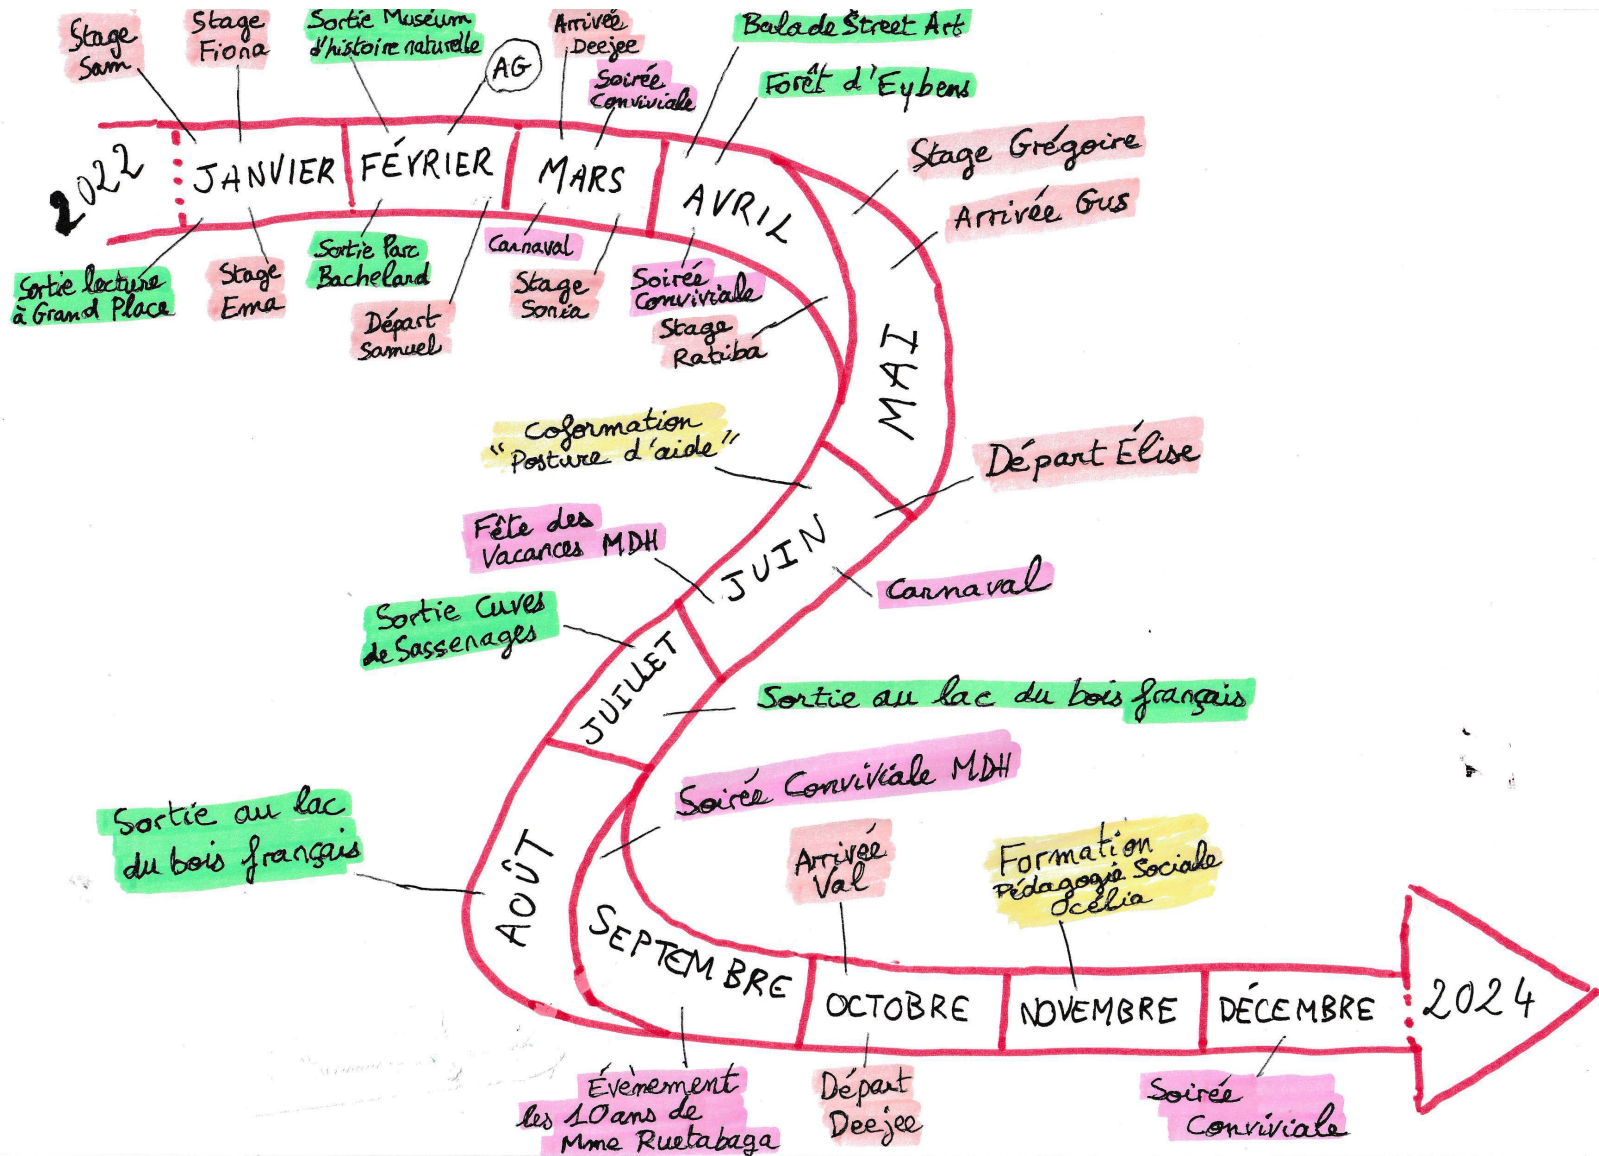 Stage
Sam
Stage
Fiona
Sortie Muséum
d'histoire naturelle
AG
Arrivée
Deejee
Soirée
Conviviale
Balade Street Art
Forêt d'Eybens
Stage Grégoire
Arrivée Gus
2022
JANVIER
FÉVRIER
MARS
AVRIL
MAI
Sortie lecture
à Grand Place
Stage
Ema
Sortie Parc
Bachelard
Départ
Samuel
Carnaval
Stage
Sonia
Soirée
Conviviale
Stage
Ratiba
Coformation
"Posture d'aide"
Départ Élise
Fête des
Vacances MDH
JUIN
Carnaval
Sortie Cuves
de Sassenages
JUILLET
Sortie au lac du bois français
Soirée Conviviale MDH
Sortie au lac
du bois français
AOÛT
SEPTEMBRE
Arrivée
Val
Formation
Pédagogie Sociale
Océlia
OCTOBRE
NOVEMBRE
DÉCEMBRE
2024
Évènement
les 10 ans de
Mme Ruetabaga
Départ
Deejee
Soirée
Conviviale